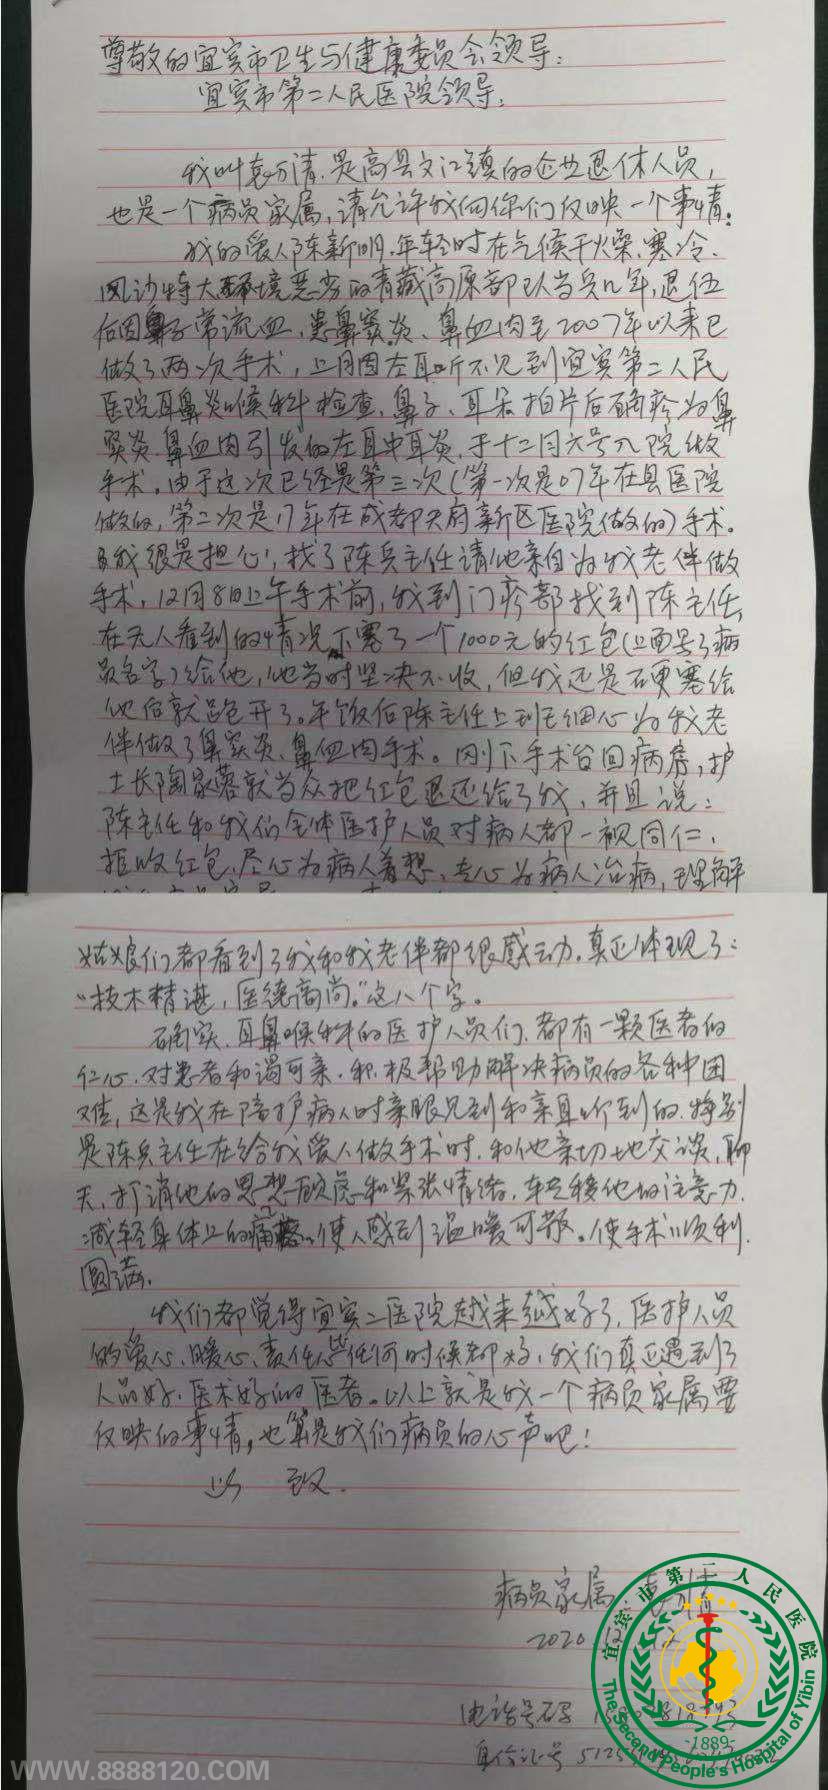 尊敬的宜宾市卫生与健康委员会领导:
宜宾市第二人民医院领导:
我叫袁万清.是高县文江镇的企业退休人员,
也是一个病员家属,请允许我向你们反映一个事情.
我的爱人陈新明.年轻时在气候干火燥.寒冷.
风沙特大环境恶劣的青藏高原部队当兵几年,退伍
后因鼻子常流血,患鼻窦炎、鼻血肉至2007年以来已
做了两次手术,上月因左耳听不见到宜宾第二人民
医院耳鼻炎喉科检查,鼻子、耳朵拍片后确疹为鼻
窦炎.鼻血肉引发的左耳中耳炎,于十二月六号入院做
手术。由于这次已经是第三次(第一次是07年在县医院
做的,第二次是17年在成都天府新区医院做的)手术。
我很是担心,找了陈兵主任请他亲自为我老伴做
手术,12月8日上午手术前,我到门疹部找到陈主任,
在无人看到的情况下塞了一个1000元的红包(上面写了病
员名字)给他,他当时坚决不收,但我还是硬塞给
他后就跑开了。午饭后陈主任上到手细心为我老
伴做了鼻窦炎、鼻血肉手术。刚下手术台回病房,护
士长陶家蓉就当众把红包退还给了我,并且说:
陈主任和我们全体医护人员对病人都一视同仁,
拒收红包.尽心为病人着想,专心为病人治病,理解
姑娘们都看到了我和我老伴都很感动.真正体现了:
“技术精湛,医德高尚。”这八个字。
确实.耳鼻喉科的医护人员们.都有一颗医者的
仁心.对患者和谒可亲.积极帮助解决病员的各种困
难,这是我在陪护病人时亲眼见到和亲耳听到的.特别
是陈兵主任在给我爱人做手术时.和他亲切地交谈,聊
天,打消他的思想顾虑和紧张情绪,转移他的注意力.
减轻身体上的痛.使人感到温暖可敬。使手术顺利.
圆满.
我们都觉得宜宾二医院越来越好了.医护人员
的爱心.暖心.责任心任何时候都好,我们真正遇到了
人品好.医术好的医者。以上就是我一个病员家属要
反映的事情,也算是我们病员的心声吧!
此 致.
病员家属:
2020
电话号码
身份证号 5125
宜宾市第二人民医院
The Second People's Hospital of Yibin
-1889-
WWW.8888120.COM